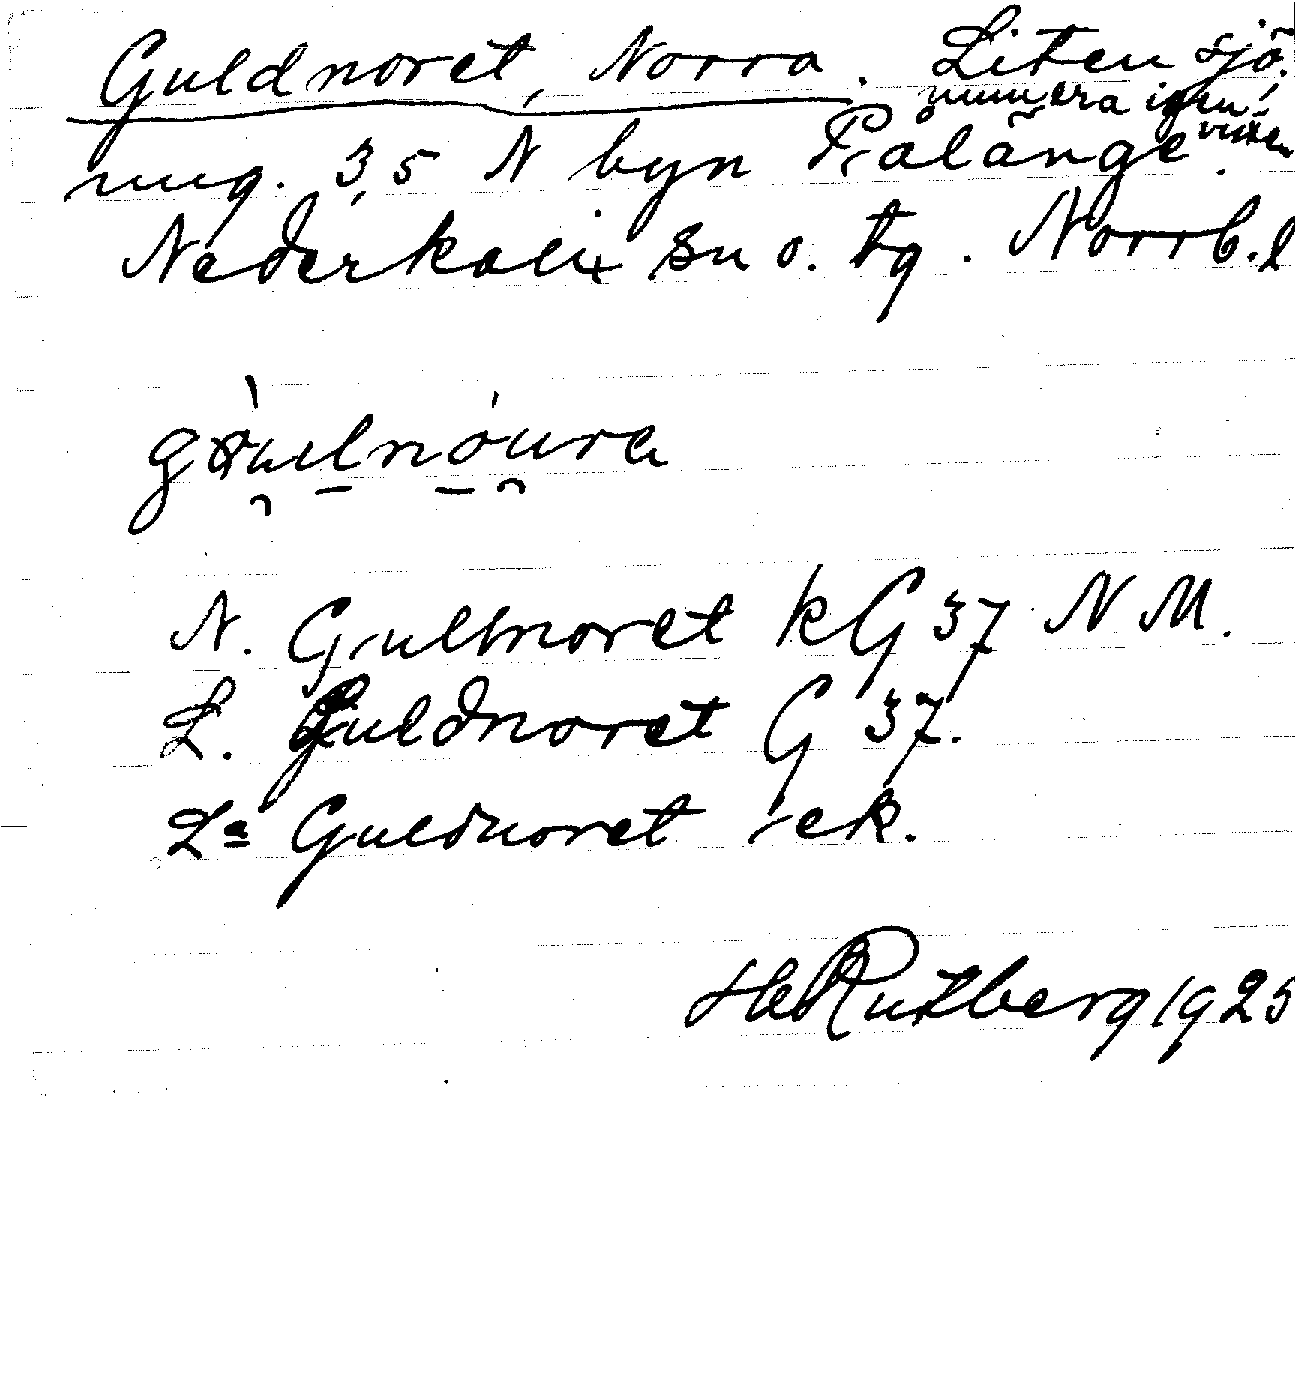 Guldnoret, Norra. Liten sjö,
numera igen-
vuxen
ung. 3,5 N byn Pålänge.
Nederkalix sn o. tg. Norrb. l
N. Gullnoret kG 37 NM.
L. Guldnoret G 37.
La Guldnoret ek.
H Rutberg 1925